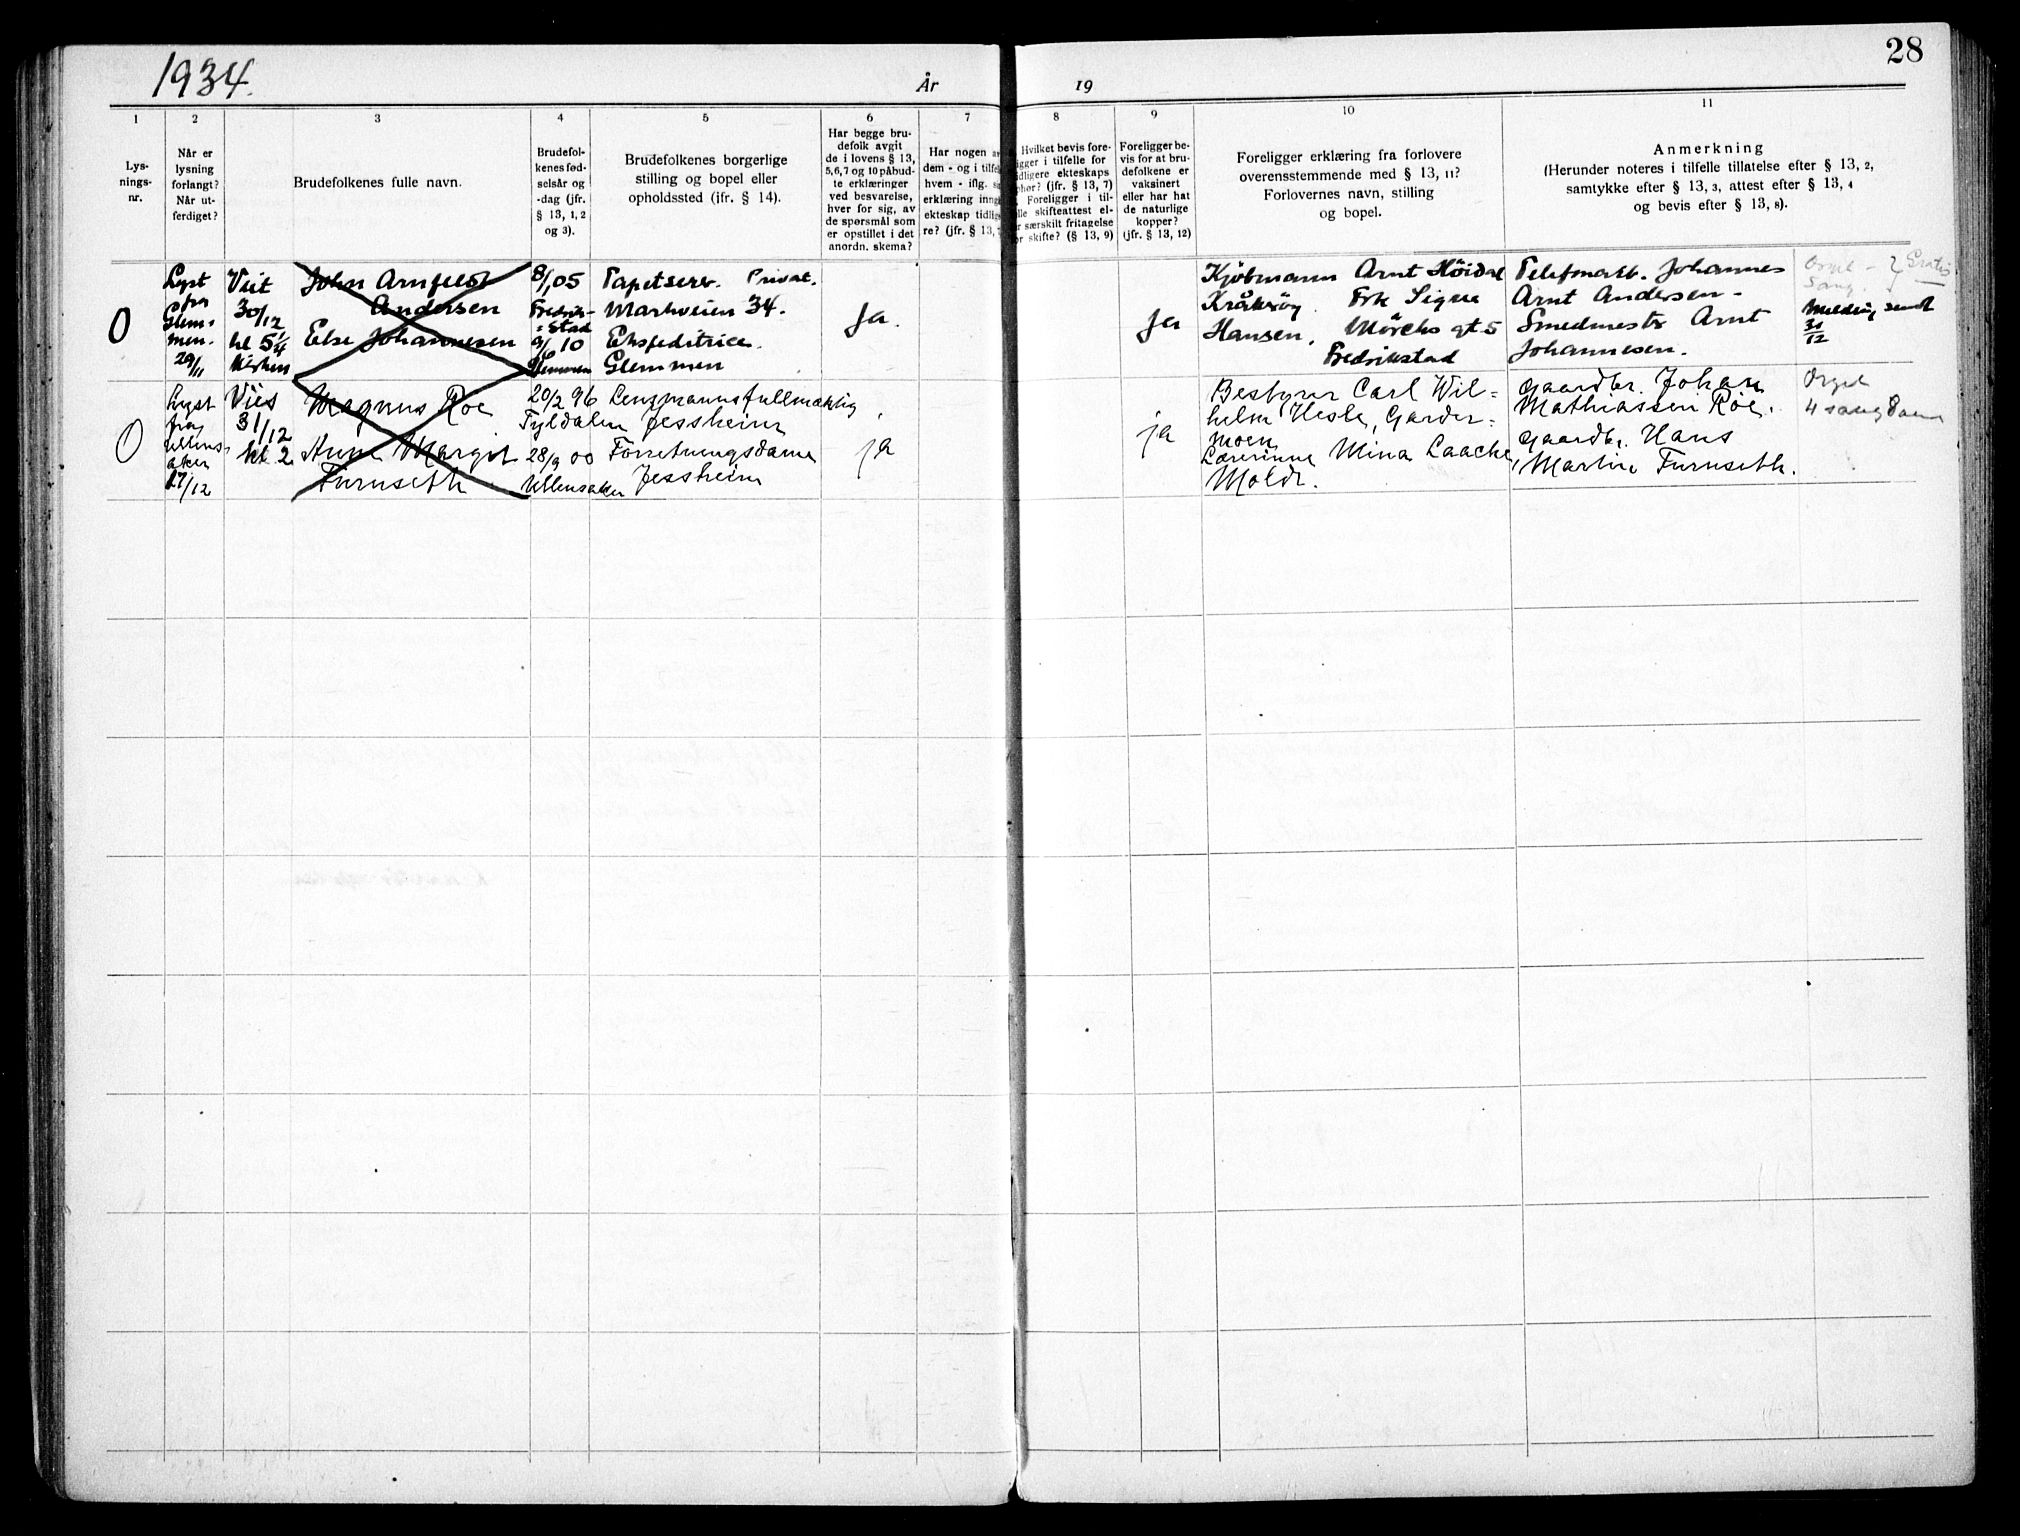 28
1934.
År
19
1
2
3
4
5
6
7
8
9
10
11
Lys-
nings-
nr.
Når er
lysning
forlangt?
Når ut-
ferdiget?
Brudefolkenes fulle navn.
Brudefol-
kenes fød-
selsår og
-dag (jfr.
§ 13, 1, 2
og 3).
Brudefolkenes borgerlige
stilling og bopel eller
opholdssted (jfr. § 14).
Har begge bru-
defolk avgit
de i lovens § 13,
5, 6, 7 og 10 påbud-
te erklæringer
ved besvarelse,
hver for sig, av
de spørsmål som
er opstillet i det
anordn. skema?
Har nogen
dem - og i tilfe
hvem - iflg.
erklæring inng
ekteskap tidlig
re? (jfr. § 13,
Hvilket bevis fore-
ligger i tilfelle for
tidligere ekteskaps
ophør? (jfr. § 13, 7)
Foreligger i til-
felle skifteattest el-
er særskilt fritagelse
for skifte? (§ 13, 9)
Foreligger be-
vis for at bru-
defolkene er
vaksinert
eller har hat
de naturlige
kopper?
(jfr. § 13, 12)
Foreligger erklæring fra forlovere
overensstemmende med § 13, 11?
Forlovernes navn, stilling
og bopel.
Anmerkning
(Herunder noteres i tilfelle tillatelse efter § 13, 2,
samtykke efter § 13, 3, attest efter § 13, 4
og bevis efter § 13, 8).
0
Lyst
fra
Glem-
men.
29/11
Viet
30/12
kl 5 1/4
Kirken
John Arnfeldt
Andersen
Else Johannesen
8/1 05
Fredrik-
stad
9/ 10
Glemmen
Tapetserer. Privat.
Markveien 34.
Ekspeditrice.
Glemmen
Ja.
Ja
Kjøbmann Arnt Höidal
Kråkerøy Frk Signe
Hansen, Mörchs gt. 5
Fredrikstad
Johannes
Arnt Andersen -
Smedmestr Arnt
Johannesen.
Orgel -
Sang.
Gratis
Melding sendt
31/12
0
Lyst
fra
Ullens-
aker
17/12
Vies
31/12
kl. 2
Magnus Roe
Anna Margit
Furuseth
20/2 96
Tyldalen
28/9 00
Ullensaker
Lensmannsfullmæktig
Jessheim
Forretningsdame
Jessheim
ja
ja
Bestyrer Carl Wil-
helm Hesle, Garder-
moen
Lærerinne Mina Laache,
Molde.
Gaardbr. Johan
Mathiassen Röe.
Gaardbr. Hans
Martin Furuseth.
Orgel
4 sang